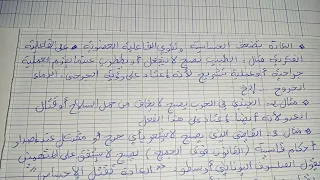 • العادة تضعف الحساسية وتقوي الفاعلية العضوية على الفاعلية
الفكرية مثل: الطبيب يصبح لا ينفعل أو يضطرب عندما يقوم بعملية
جراحية أو عملية تشريح لأنه اعتاد على رؤية الجرحى، الدماء
الجروح ... إلخ
مثال 2: الجندي في الحرب يصبح لا يخاف من حمل السلاح أو قتل
لأنه اعتاد على هذا الفعل
مثال 3: القاضي الذي لا يشعر بأي حرج أو مشكل عند إصدار
أحكام قاسية (القانون فوق الجميع) يصبح لا يشفق على المتهمين
يقول الفيلسوف اليوناني أرسطو: "العادة تقتل الإحساس"